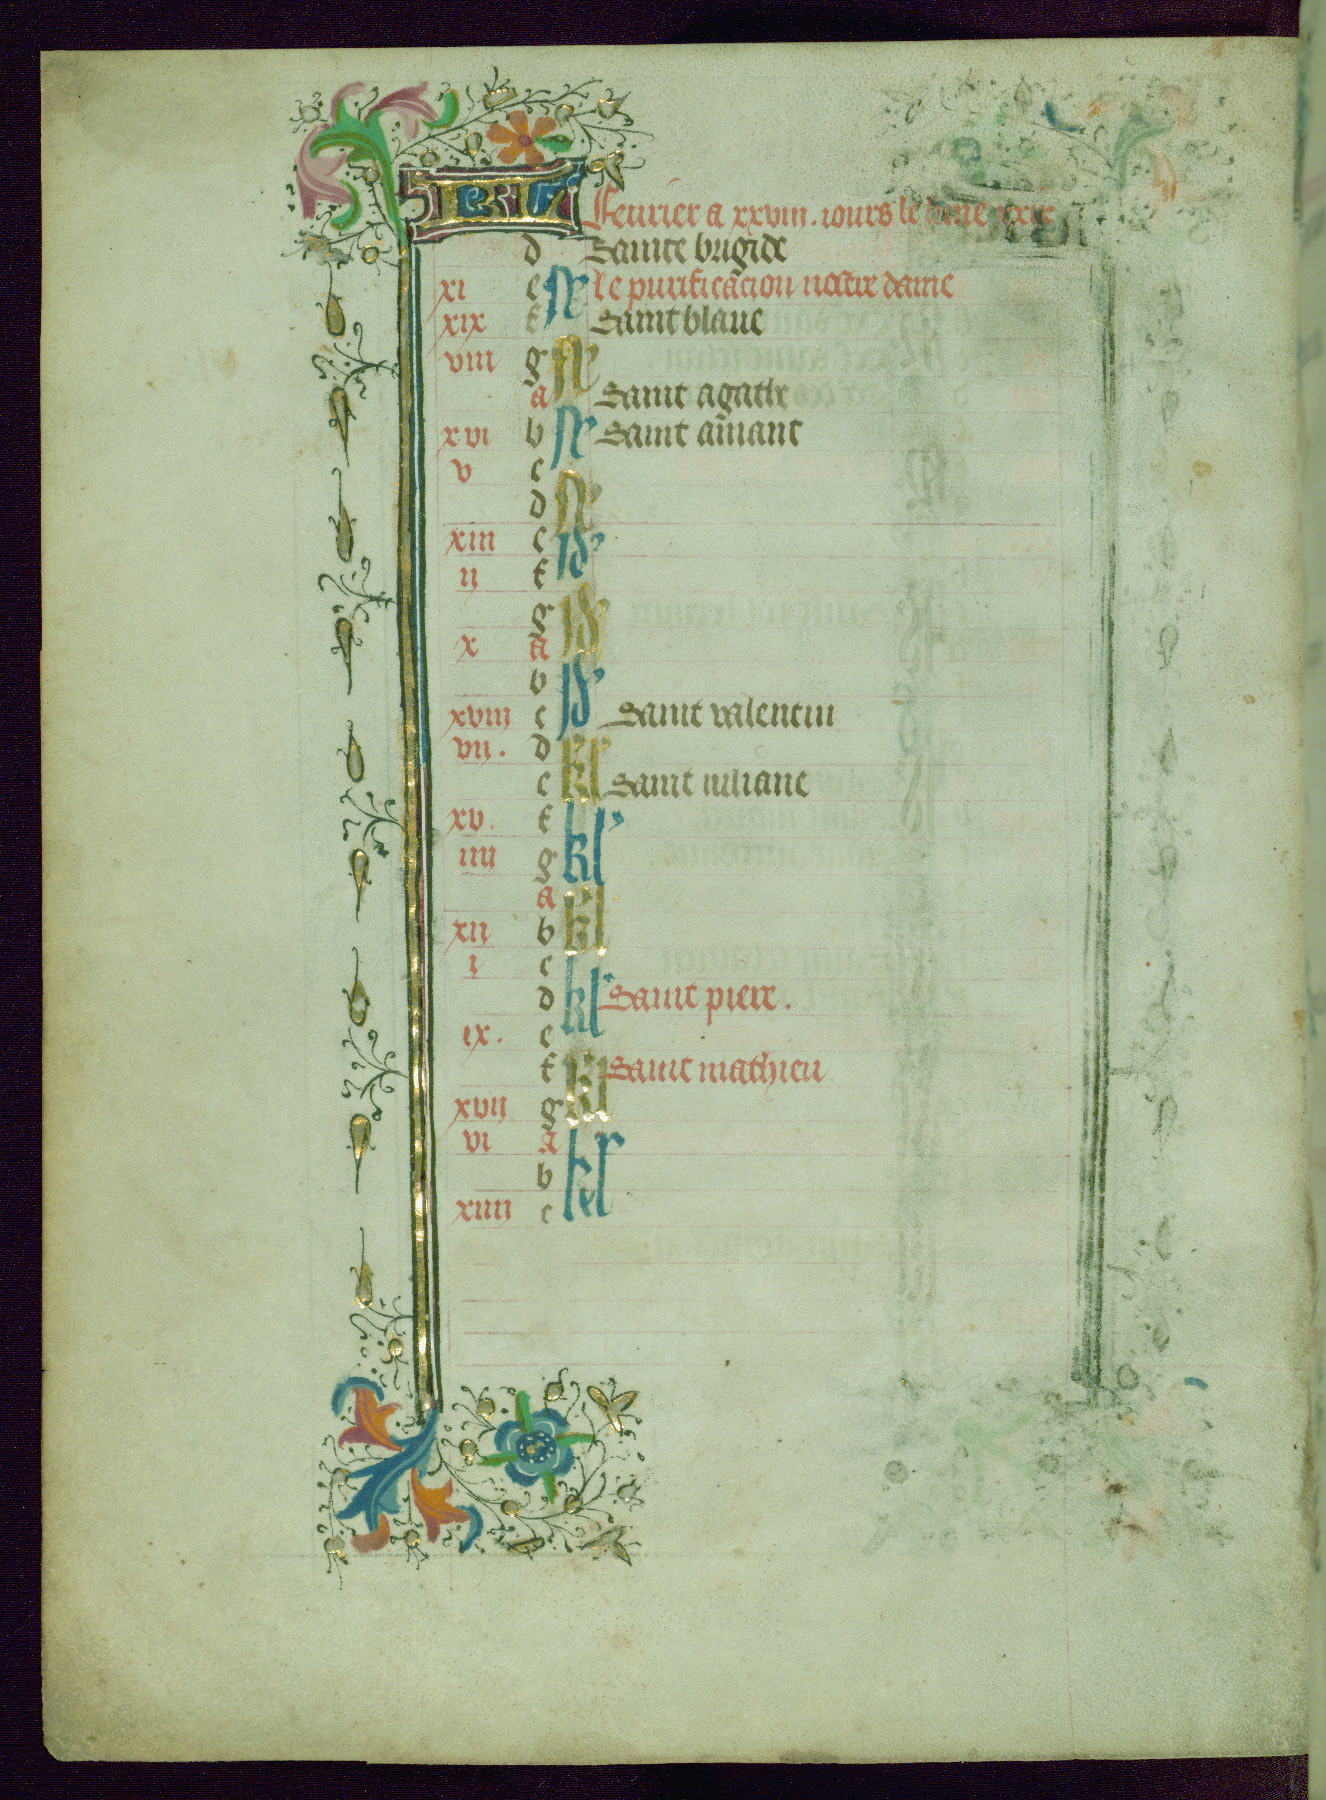 Feurier a xxviii. iours le lune xxix
d Sainte brigide
xi e N le purificacion nostre dame
xix f Saint blaue
viii g N
a Saint agathe
xvi b N Saint amant
v c
d N
xiii e Id
ii f
g Id
x a
b Id
xviii c Saint valentin
vii. d kl
e Saint iuliane
xv. f kl
iiii g
a kl
xii b
i c kl
d Saint piere.
ix. e
f kl Saint mathieu
xvii g
vi a kl
b
xiiii c